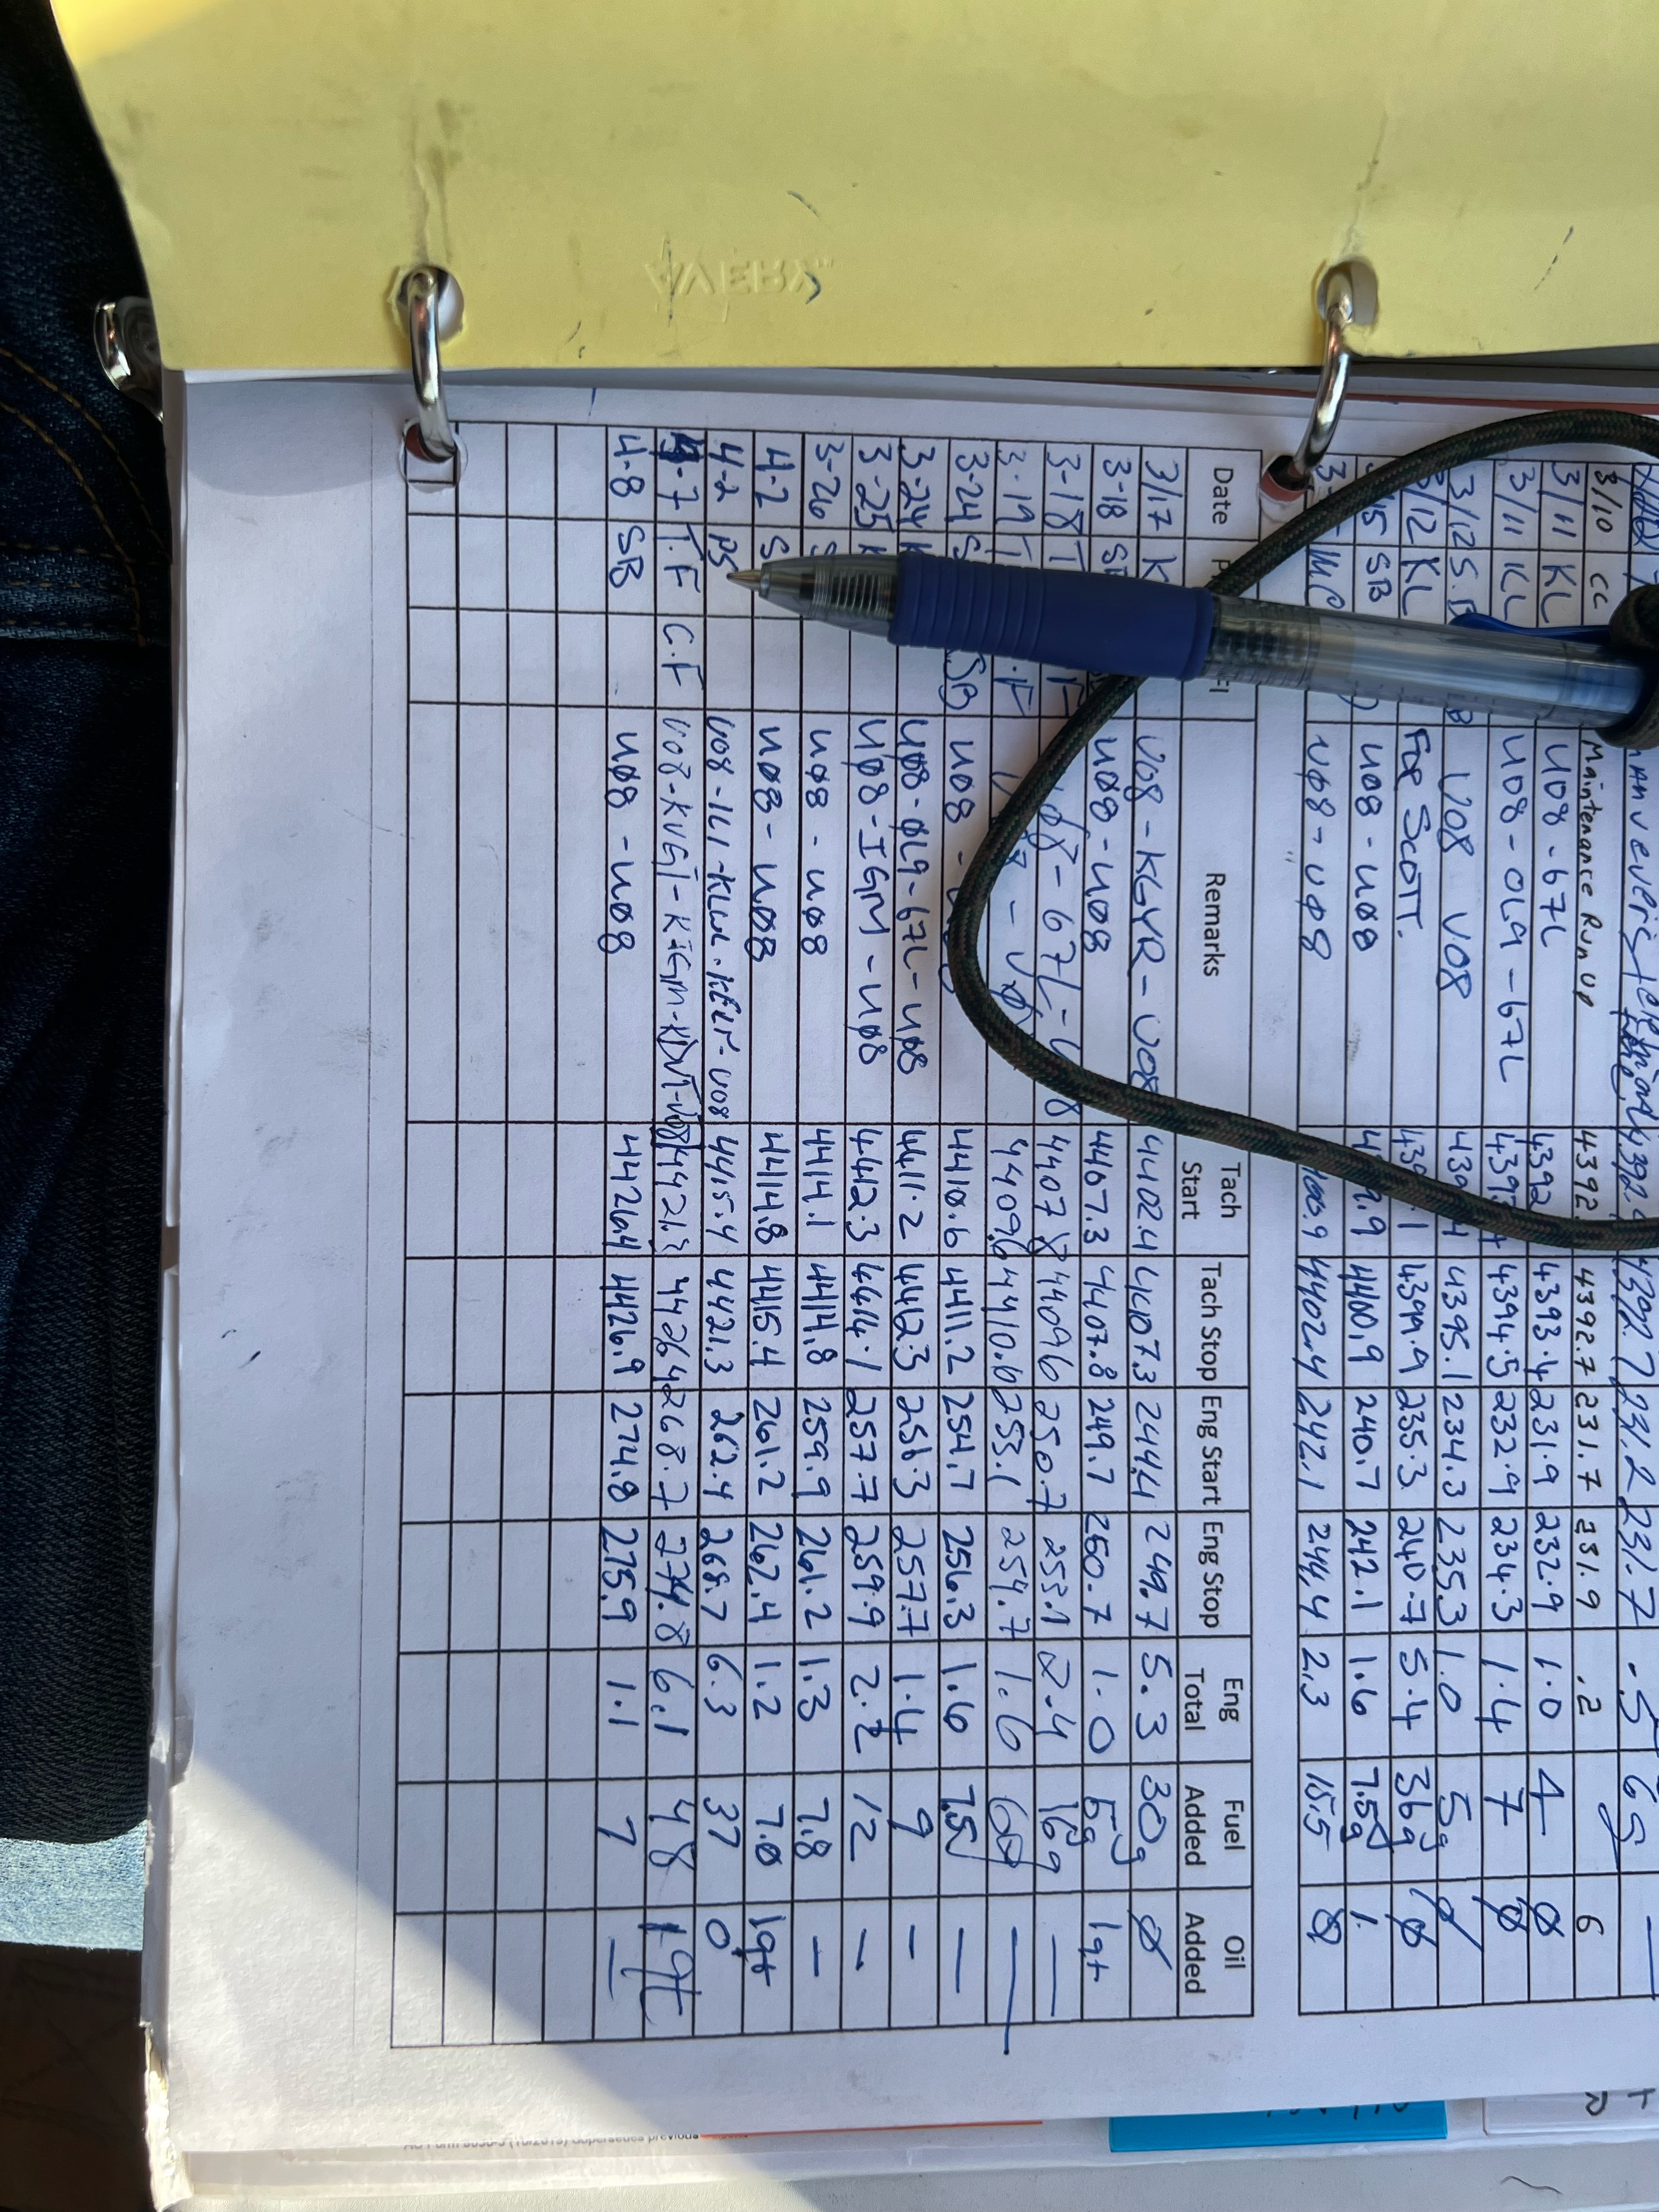 AVERY
4392.7 231.2 231.7 .5 6g —
3/10 CC Maintenance Run Up 4392 4392.7 231.7 231.9 .2 6
3/11 KL U08 - 67L 4392 4393.4 231.9 232.9 1.0 4 Ø
3/11 KL U08 - 0L9 - 67L 4394.5 232.9 234.3 1.4 7 Ø
3/12 S.B U08 U08 4395.1 234.3 235.3 1.0 5g Ø
3/12 KL FOR SCOTT. 4399.9 235.3 240.7 5.4 36g Ø
SB U08 - U08 4400.9 240.7 242.1 1.6 7.5g
UØ8 - UØ8 4402.4 242.1 244.4 2.3 15.5 Ø
Date Remarks Tach Start Tach Stop Eng Start Eng Stop Eng Total Fuel Added Oil Added
3/17 K U08 - KGYR - U08 4402.4 4407.3 244.4 249.7 5.3 30g Ø
3-18 U08 - U08 4407.3 4407.8 249.7 250.7 1.0 5g 1qt
3-18 T F - 67L - 4407.8 4409.6 250.7 253.1 2.4 16g —
3-19 T .F 4409.6 4410.6 253.1 254.7 1.6 —
3-24 S SB U08 - 4410.6 4411.2 254.7 256.3 1.6 7.5 —
3-24 K UØ8 - ØL9 - 67L - UØ8 4411.2 4412.3 256.3 257.7 1.4 9 —
3-25 K UØ8 - IGM - UØ8 4412.3 4414.1 257.7 259.9 2.2 12 —
3-26 S UØ8 - UØ8 4414.1 4414.8 259.9 261.2 1.3 7.8 —
4-2 S UØ8 - UØ8 4414.8 4415.4 261.2 262.4 1.2 7.0 1qt
4-2 PS 4415.4 4421.3 262.4 268.7 6.3 37 0
4-7 T.F C.F U08 - KVGT - KIGM - KDVT - U08 4421.3 4426.4 268.7 274.8 6.1 48 1qt
4-8 SB UØ8 - UØ8 4426.4 4426.9 274.8 275.9 1.1 7 —